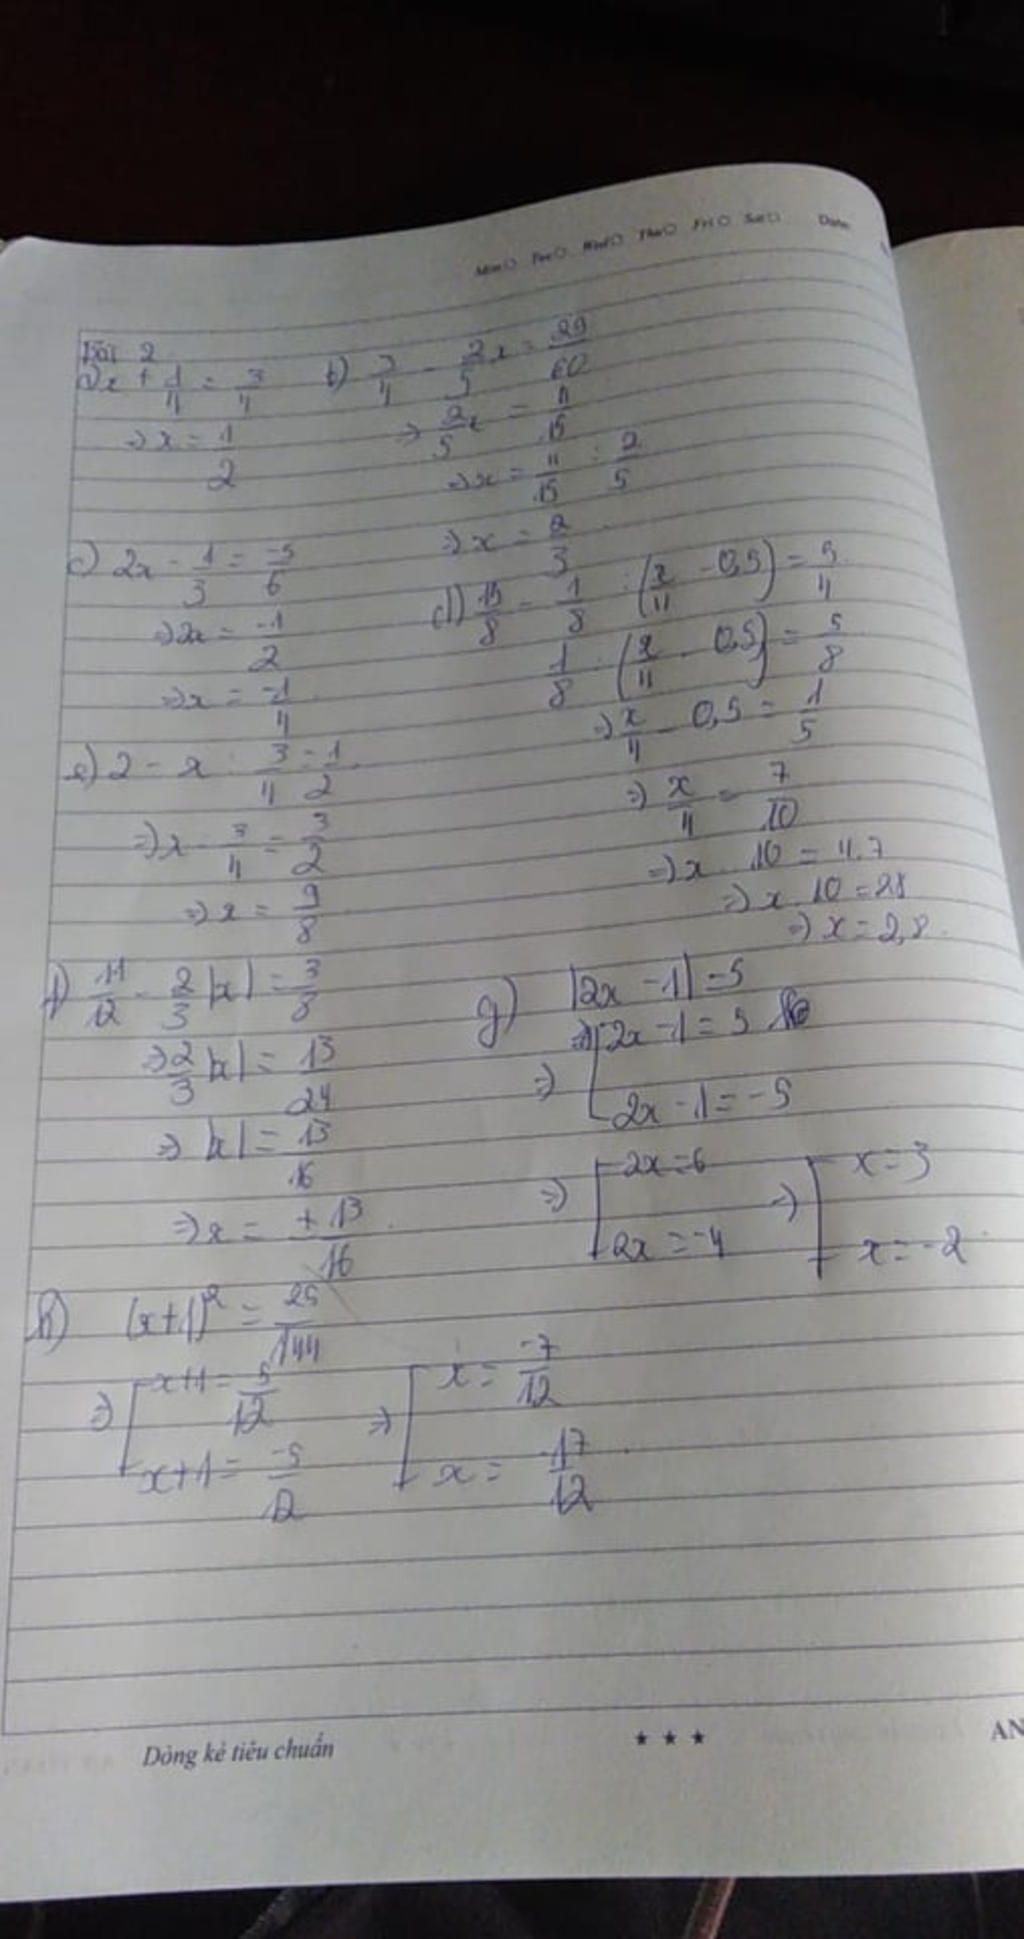 Mon Tue Wed Thu Fri Sat Date
Bài 2
a) x + 1/4 = 3/4
=> x = 1/2
b) 3/4 - 2/5 x = 29/60
=> 2/5 x = 4/15
=> x = 4/15 : 2/5
=> x = 2/3
c) 2x - 1/3 = -5/6
=> 2x = -1/2
=> x = -1/4
d) 15/8 - 1/8 : (x/4 - 0,5) = 5/4
1/8 : (x/4 - 0,5) = 5/8
=> x/4 - 0,5 = 1/5
=> x/4 = 7/10
=> x . 10 = 4.7
=> x . 10 = 28
=> x = 2,8
e) 2 - x : 3/4 = 1/2
=> x : 3/4 = 3/2
=> x = 9/8
f) 11/12 - 2/3 |x| = 3/8
=> 2/3 |x| = 13/24
=> |x| = 13/16
=> x = ±13/16
g) |2x - 1| = 5
=> [ 2x - 1 = 5
2x - 1 = -5
=> [ 2x = 6 => [ x = 3
2x = -4 x = -2
h) (x + 1)² = 25/144
=> [ x + 1 = 5/12 => [ x = -7/12
x + 1 = -5/12 x = -17/12
Dòng kẻ tiêu chuẩn ★ ★ ★ AN